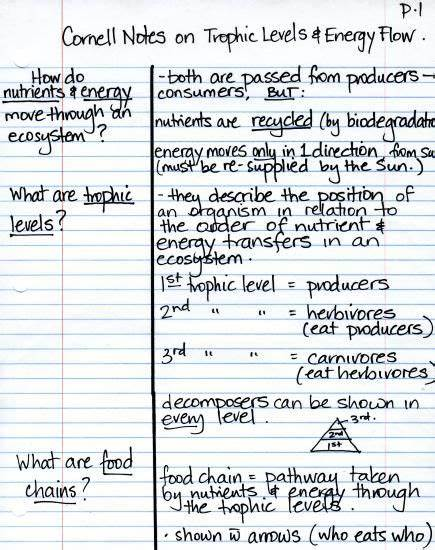 P.1
Cornell Notes on Trophic Levels & Energy Flow.
How do
nutrients & energy
move through an
ecosystem?
- both are passed from producers →
consumers, BUT:
nutrients are recycled (by
energy moves only in 1 direction, from
(must be re-supplied by the Sun.)
What are trophic
levels?
- they describe the position of
an organism in relation to
the order of nutrient &
energy transfers in an
ecosystem.
1st trophic level = producers
2nd " " = herbivores
(eat producers)
3rd " " = carnivores
(eat herbivores)
decomposers can be shown in
every level.
3rd.
2nd
1st
What are food
chains?
food chain = pathway taken
by nutrients & energy through
the trophic levels.
• shown w̅ arrows (who eats who)